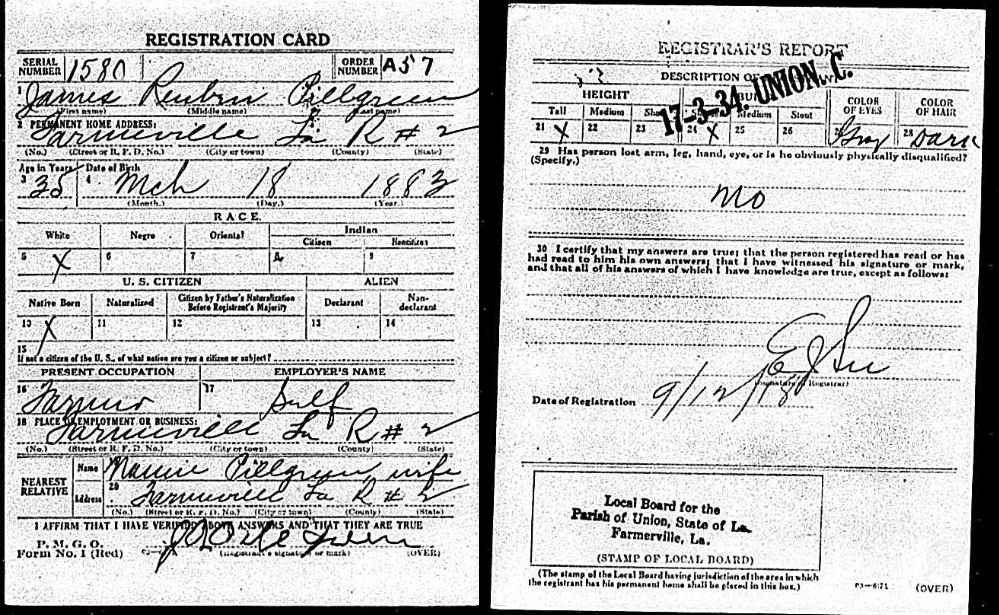 REGISTRATION CARD
SERIAL NUMBER 1580 ORDER NUMBER A57
1 James Reubin Pillgreen
(First name) (Middle name) (Last name)
2 PERMANENT HOME ADDRESS:
Farmerville La R # 2
(No.) (Street or R. F. D. No.) (City or town) (County) (State)
Age in Years Date of Birth
3 35 4 Mch 18 1883
(Month.) (Day.) (Year.)
RACE
White Negro Oriental Indian
Citizen Noncitizen
5 X 6 7 8 9
U. S. CITIZEN ALIEN
Native Born Naturalized Citizen by Father's Naturalization Before Registrant's Majority Declarant Non-declarant
10 X 11 12 13 14
15
If not a citizen of the U. S., of what nation are you a citizen or subject?
PRESENT OCCUPATION EMPLOYER'S NAME
16 Farmer 17 Self
18 PLACE OF EMPLOYMENT OR BUSINESS:
Farmerville La R # 2
(No.) (Street or R. F. D. No.) (City or town) (County) (State)
NEAREST RELATIVE Name 19 Mamie Pillgreen, wife
Address 20 Farmerville La R # 2
(No.) (Street or R. F. D. No.) (City or town) (County) (State)
I AFFIRM THAT I HAVE VERIFIED ABOVE ANSWERS AND THAT THEY ARE TRUE
P. M. G. O.
Form No. 1 (Red) (Registrant's signature or mark) (OVER)
REGISTRAR'S REPORT
17-3-34, UNION, C.
DESCRIPTION OF
HEIGHT BU COLOR OF EYES COLOR OF HAIR
Tall Medium Sh Medium Stout
21 X 22 23 24 X 25 26 27 Gray 28 Dark
29 Has person lost arm, leg, hand, eye, or is he obviously physically disqualified?
(Specify.)
No
30 I certify that my answers are true; that the person registered has read or has
had read to him his own answers; that I have witnessed his signature or mark,
and that all of his answers of which I have knowledge are true, except as follows:
(Signature of Registrar)
Date of Registration 9/12/18
Local Board for the
Parish of Union, State of La.
Farmerville, La.
(STAMP OF LOCAL BOARD)
(The stamp of the Local Board having jurisdiction of the area in which
the registrant has his permanent home shall be placed in this box.)
(OVER)